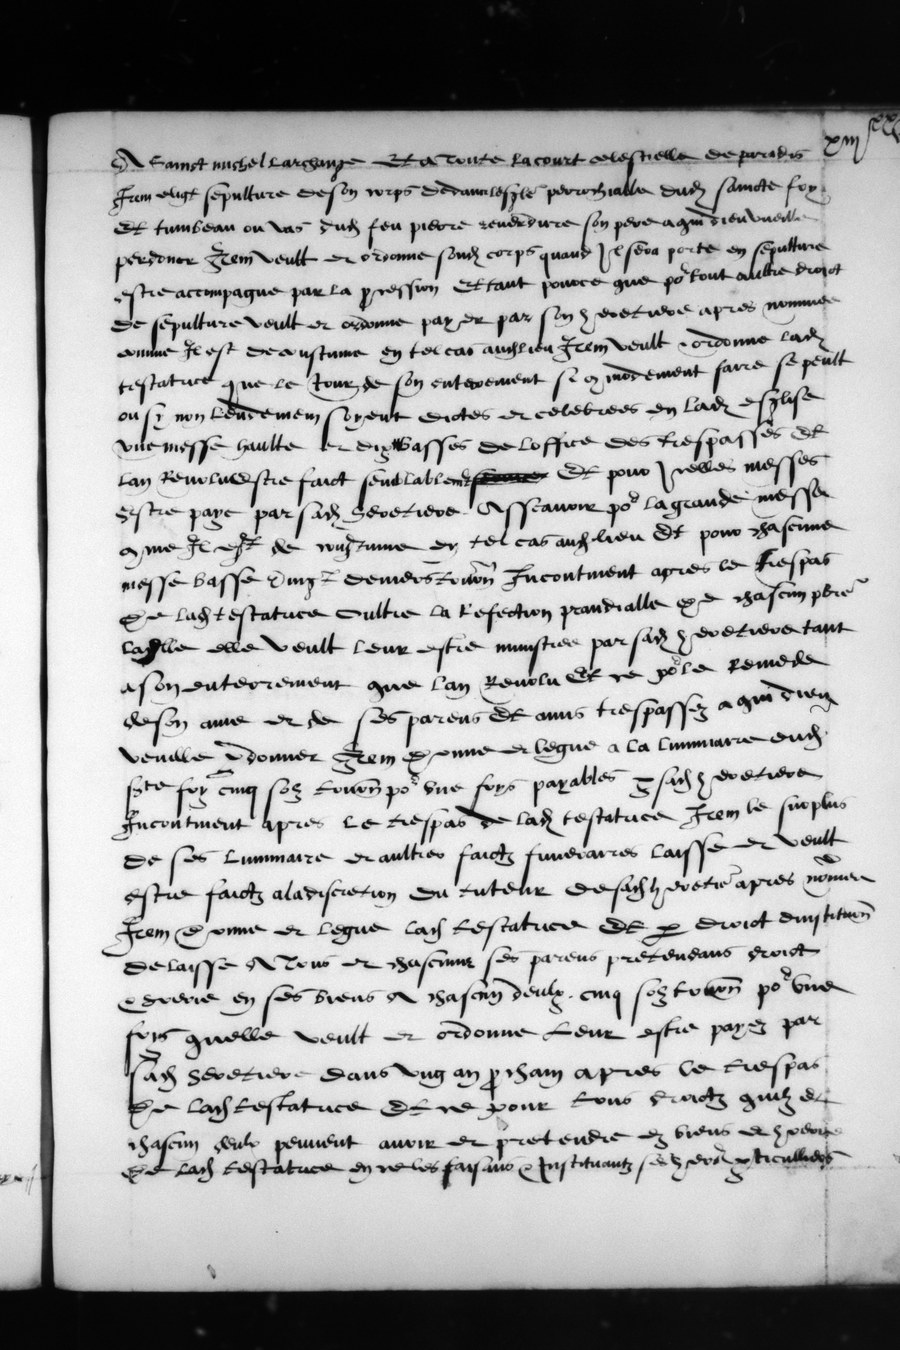 xiiij
A sainct michel larchange Et a toute la court celestielle de paradis
Item eligt sepulture de son corps dedans leglé perrochialle dudt saincte foy
et tumbeau ou vas dudt feu pierre son pere a qui dieu vueille
perdoner Item veult et ordonne sondt corps quand Il sera porte en sepulture
estre accmpagne par la pcession Et tant pource que por tout aultre droict
de sepulture veult et ordonne payer par son heretiere apres nommee
comme Il est de coustume en tel cas audt lieu Item veult ordonne ladt
testatrice que le Jour de son enterement si comodement faire se peult
ou sy non lendemein soyent dictes et celebrees en ladt esglise
vne messe haulte et dix basses de loffice des trespasses Et
lan Revolu estre faict semblablemt Et pour Icelles messes
estre paye par sadt heretiere Asscavoir por la grande messe
come Il est de coustume en tel cas audt lieu Et pour chascune
messe basse vingt deniers tourn Incontinent apres le trespas
de ladt testatrice oultre la Refection prandialle de chascun pbre
laqlle elle veult leur estre ministree par sadt heretiere tant
a son enterrement que lan Revolu Et ce por le Remede
de son ame et de ses parens Et amis trespassez a qui dieu
veuille pdonner Item donne et legue a la luminaire dudt
ste foy cinq solz tourn por vne foys payables p sadt heretiere
Incontinent apres le trespas de ladt testatrice Item le surplus
de ses luminaire et aultres faictz funeraires laisse et veult
estre faictz a la discretion du tuteur de sadt heretiere apres nomee
Item donne et legue ladt testatrice Et p droict dinstitution
delaisse A tous et chascuns ses parens pretendans droict
en ses biens A chascun deulx cinq solz tourn por vne
foys quelle veult et ordonne leur estre payez par
sadt heretiere dans vng an prochain apres le trespas
de ladt testatrice Et ce pour tous droictz quilz et
chascun deulx peuvent avoir et pretendre ez biens et
de ladt testatrice en ce les faisans Instituantz ses particulliers